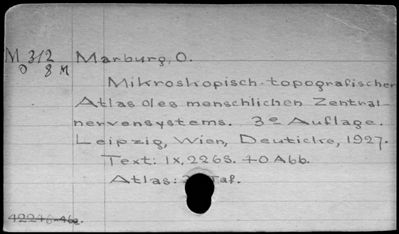 M 312 Marburg, O.
O 8 M
Mikroskopisch-topografischer
Atlas des menschlichen Zentral-
nervensystems. 3e Auflage.
Leipzig, Wien, Deuticke, 1927.
Text: IX, 226S. +0 Abb.
Atlas: Taf.